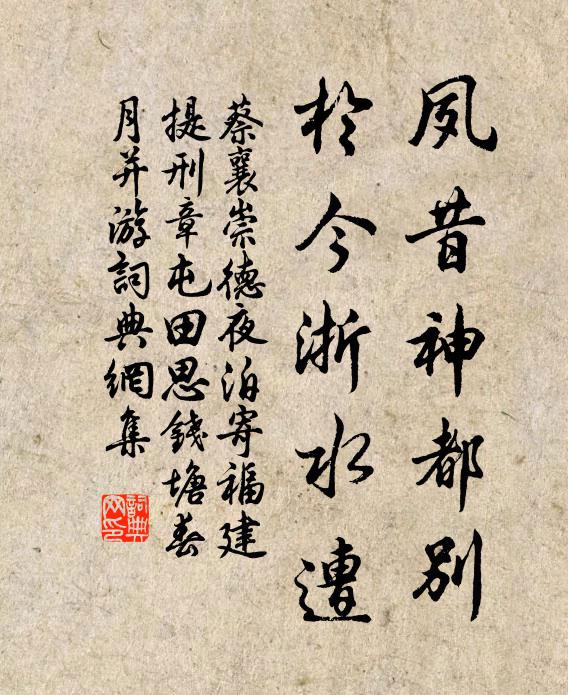 夙昔神都別
於今浙水遭
蔡襄崇德夜泊寄福建
提刑章屯田思錢塘春
月并游詞典網集
詞典
网印